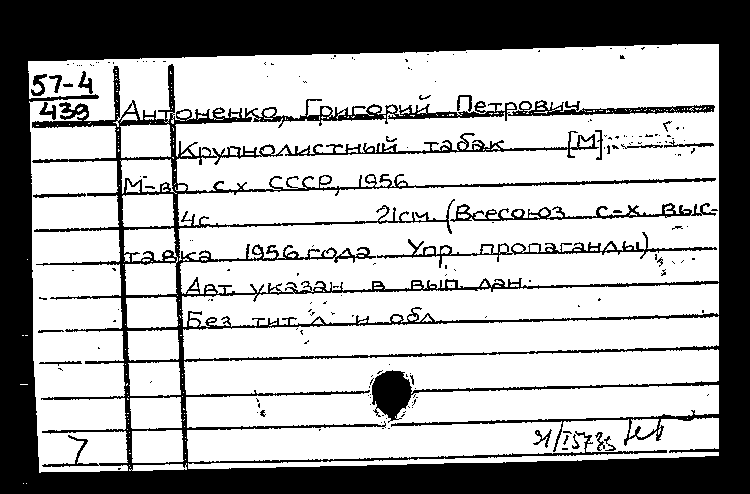 57-4
439
Антоненко, Григорий Петрович
Крупнолистный табак [М],
М-во с.х СССР, 1956
4с. 21см. (Всесоюз с-х. выс-
тавка 1956 года Упр. пропаганды)
Авт. указан в вып дан.
Без тит л и обл
7